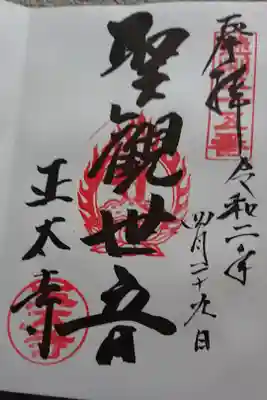 奉拝
令和二年
四月二十六日
聖観世音
正太寺